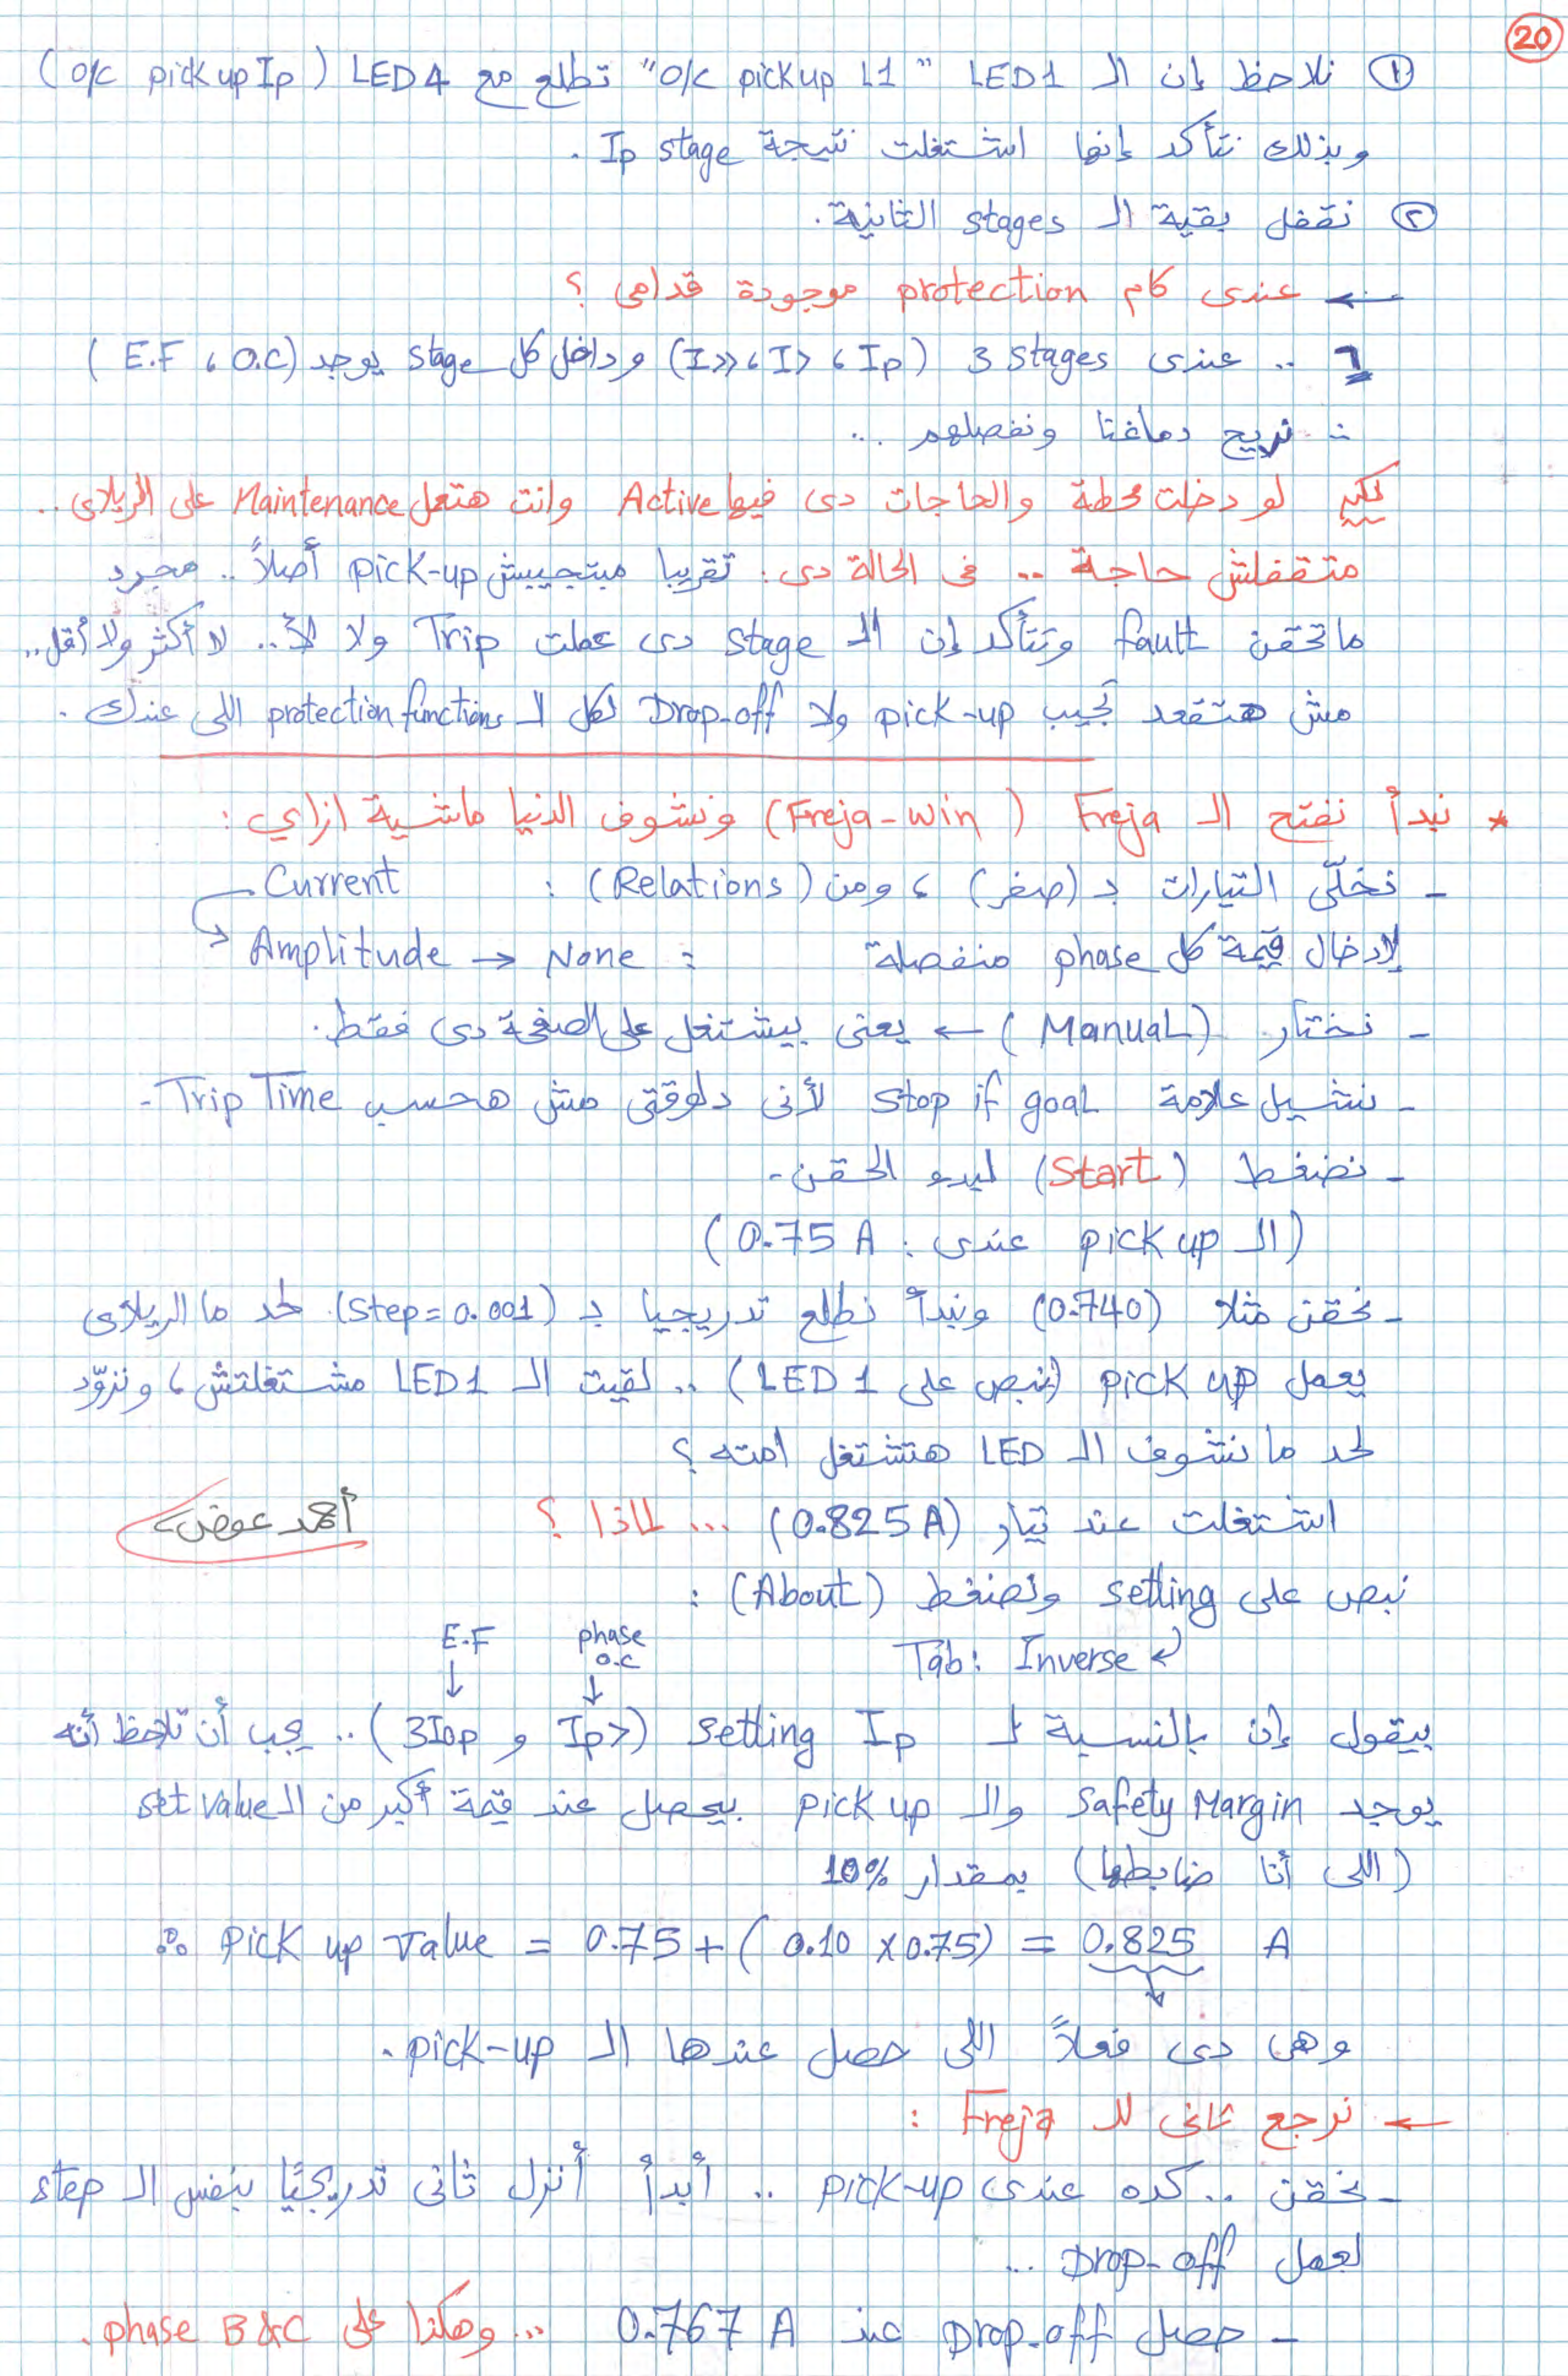 20
① نلاحظ إن الـ LED1 "O/C pickup L1" تطلع مع LED4 (O/C pickup Ip)
وبذلك نتأكد إنها اشتغلت نتيجة Ip stage .
② نقفل بقية الـ stages التانية.
← عندى كام protection موجودة قدامى ؟
6 .. عندى 3 stages (Ip ، I> ، I>>) وداخل كل stage يوجد (O.C ، E.F)
∴ نريح دماغنا ونفصلهم ..
لو دخلت محطة والحاجات دى فيها Active وانت هتعمل Maintenance على الريلاى ..
متقفلش حاجة .. فى الحالة دى : تقريبا مبتجيبش pick-up أصلاً .. مجرد
ماتحقن fault وتتأكد إن الـ stage دى عملت Trip ولا لأ .. لا أكثر ولا أقل ..
مش هتقعد تجيب pick-up ولا Drop-off لكل الـ protection functions اللى عندك .
* نبدأ نفتح الـ Freja (Freja-Win) ونشوف الدنيا ماشية ازاي :
- نخلّى التيارات بـ (صفر) ، ومن (Relations) : Current
لإدخال قيمة كل phase منفصلة : Amplitude → None
- نختار (Manual) ← يعنى بيشتغل على الصفحة دى فقط .
- نشيل علامة stop if goal لأنى دلوقتى مش هحسب Trip Time -
- نضغط (Start) لبدء الحقن -
(الـ pick up عندى : 0.75 A)
- نحقن مثلا (0.740) ونبدأ نطلع تدريجيا بـ (step = 0.001) . لحد ما الريلاى
يعمل pick up (نبص على LED 1) .. لقيت الـ LED1 مشتغلتش ، ونزوّد
لحد ما نشوف الـ LED هتشتغل امته ؟
اشتغلت عند تيار (0.825 A) ... لماذا ؟
أحمد عوض
نبص على setting ونضغط (About) :
Tab: Inverse
phase O.C ↓
E.F ↓
بيقول إن بالنسبة لـ Ip setting (Ip> و 3I0p) .. يجب أن تلاحظ أنه
يوجد Safety Margin والـ pick up بيحصل عند قيمة أكبر من الـ set value
(اللى أنا ضابطها) بمقدار 10%
∴ Pick up value = 0.75 + (0.10 x 0.75) = 0.825 A
وهى دى فعلاً اللى حصل عندها الـ pick-up .
← نرجع تانى للـ Freja :
- نحقن .. كده عندى pick-up .. أبدأ أنزل تانى تدريجيًا بنفس الـ step
لعمل Drop-off ...
- حصل Drop-off عند 0.767 A ... وهكذا على phase B&C .